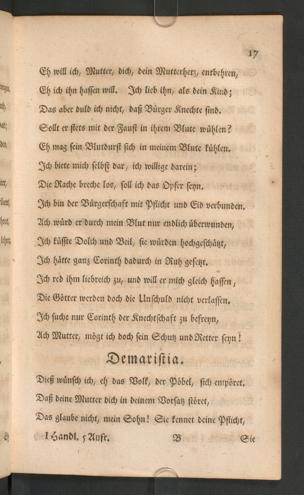 17
Eh will ich, Mutter, dich, dein Mutterherz, entbehren,
Eh ich ihn hassen will. Ich lieb ihn, als dein Kind;
Das aber duld ich nicht, daß Bürger Knechte sind.
Sollt er stets mit der Faust in ihrem Blute wühlen?
Eh mag sein Blutdurst sich in meinem Blute kühlen.
Ich biete mich selbst dar, ich willige darein;
Die Rache breche los, soll ich das Opfer seyn.
Ich bin der Bürgerschaft mit Pflicht und Eid verbunden.
Ach würd er durch mein Blut nur endlich überwunden,
Ich küßte Dolch und Beil, sie würden hochgeschätzt,
Ich hätte ganz Corinth dadurch in Ruh gesetzt.
Ich red ihm liebreich zu, und will er mich gleich hassen,
Die Götter werden doch die Unschuld nicht verlassen.
Ich suche nur Corinth der Knechtschaft zu befreyn,
Ach Mutter, mögt ich doch sein Schutz und Retter seyn!
Demaristia.
Dieß wünsch ich, eh das Volk, der Pöbel, sich empöret,
Daß deine Mutter dich in deinem Vorsatz störet,
Das glaube nicht, mein Sohn! Sie kennet deine Pflicht,
I Handl. 5 Auft. B Sie